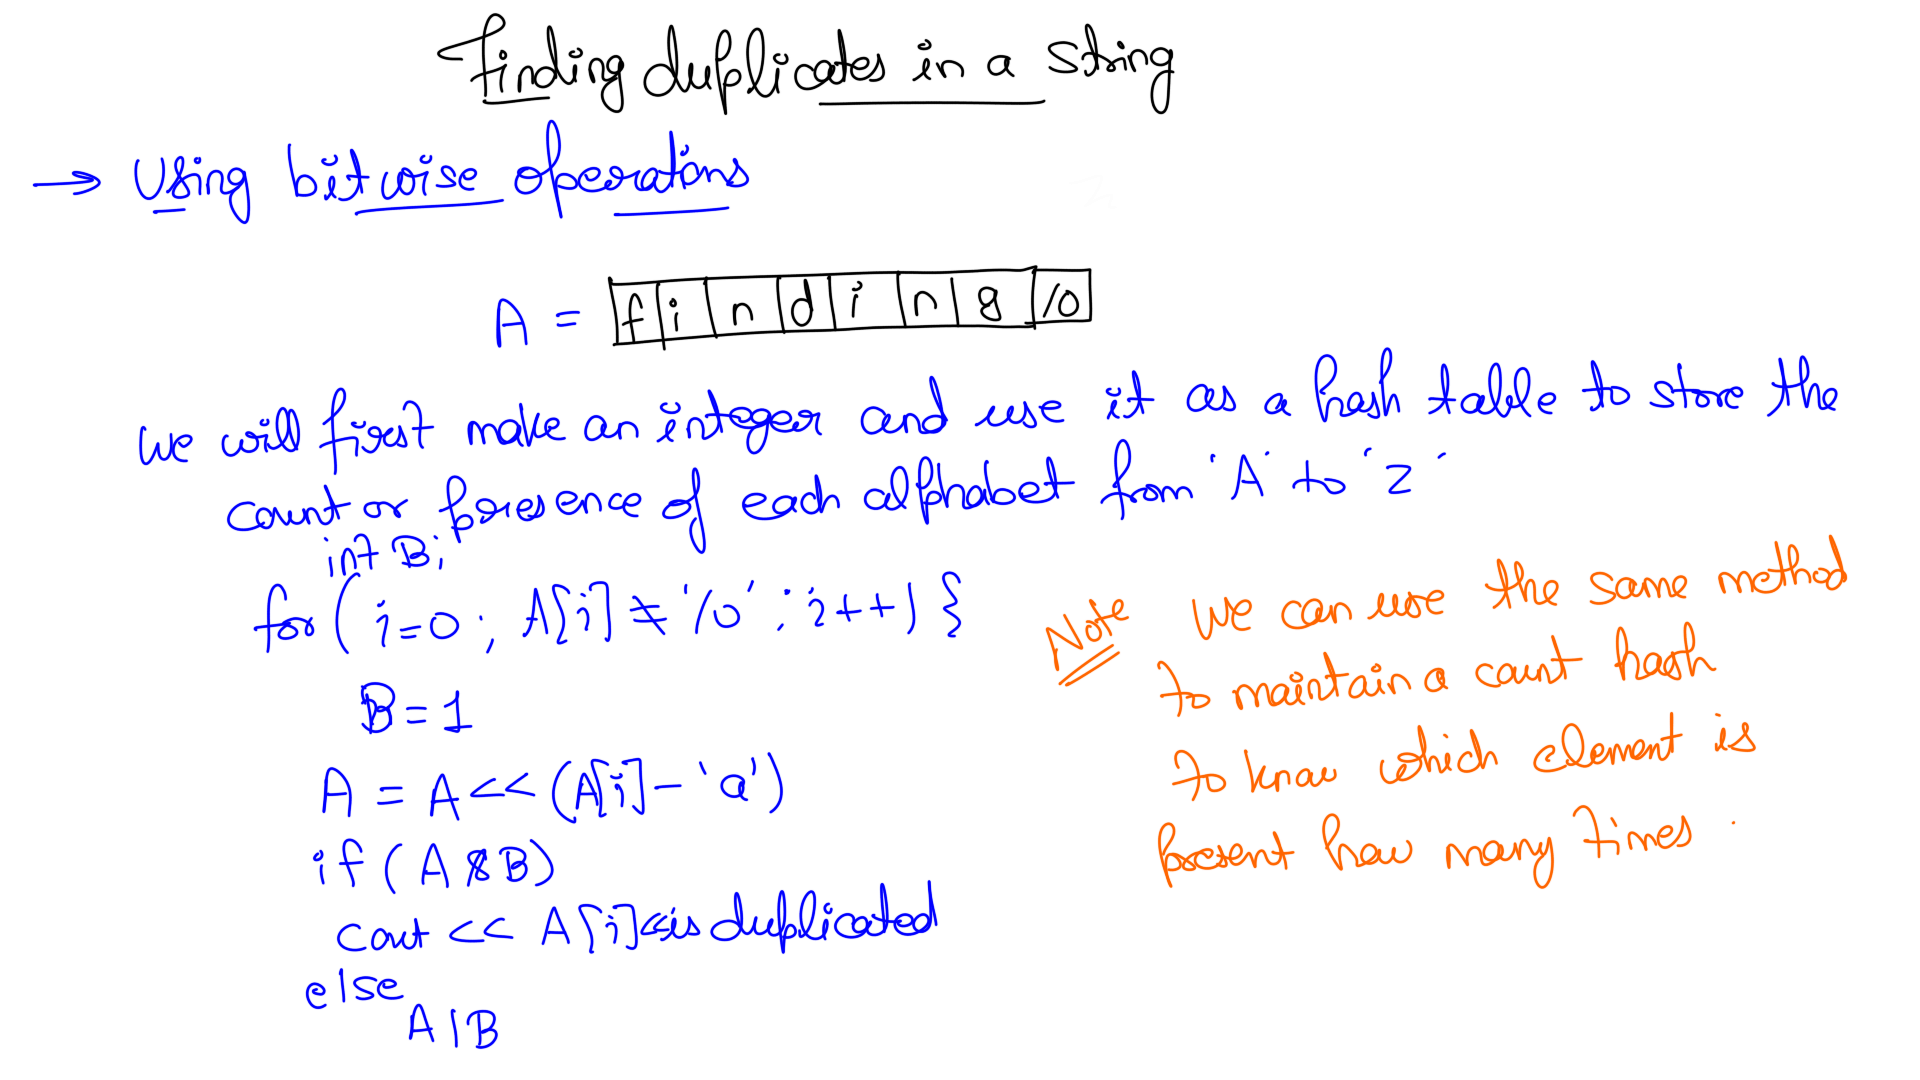 Finding duplicates in a string
→ Using bitwise operations
A = f i n d i n g /0
we will first make an integer and use it as a hash table to store the
count or presence of each alphabet from 'A' to 'z'
int B;
for ( i=0 ; A[i] ≠ '/0' ; i++) {
B = 1
A = A << (A[i] - 'a')
if ( A & B)
cout << A[i] << is duplicated
else
A | B
Note We can use the same method
to maintain a count hash
to know which element is
present how many times .